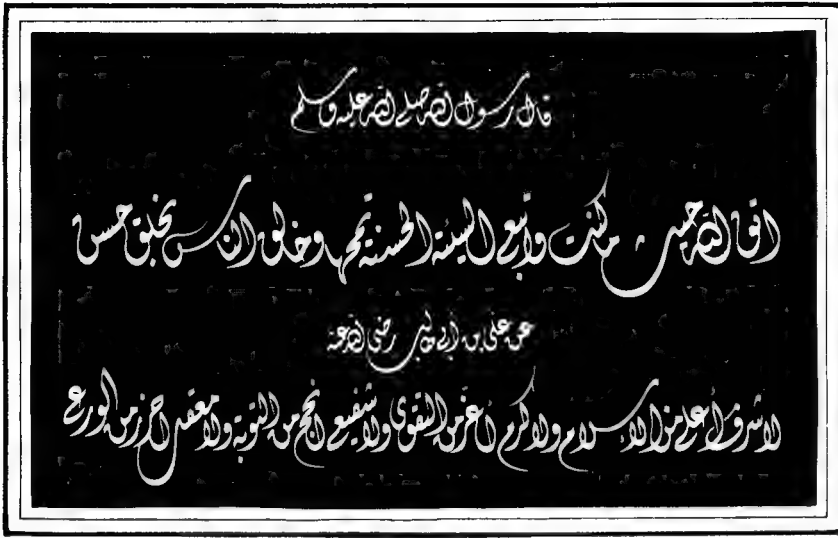 قال رسول الله صلى الله عليه وسلم
اتق الله حيث ما كنت واتبع السيئة الحسنة تمحها وخالق الناس بخلق حسن
عن علي بن أبي طالب رضي الله عنه
لا شرف أعلى من الإسلام ولا كرم أعز من التقوى ولا شفيع أنجح من التوبة ولا معقل احرز من الورع